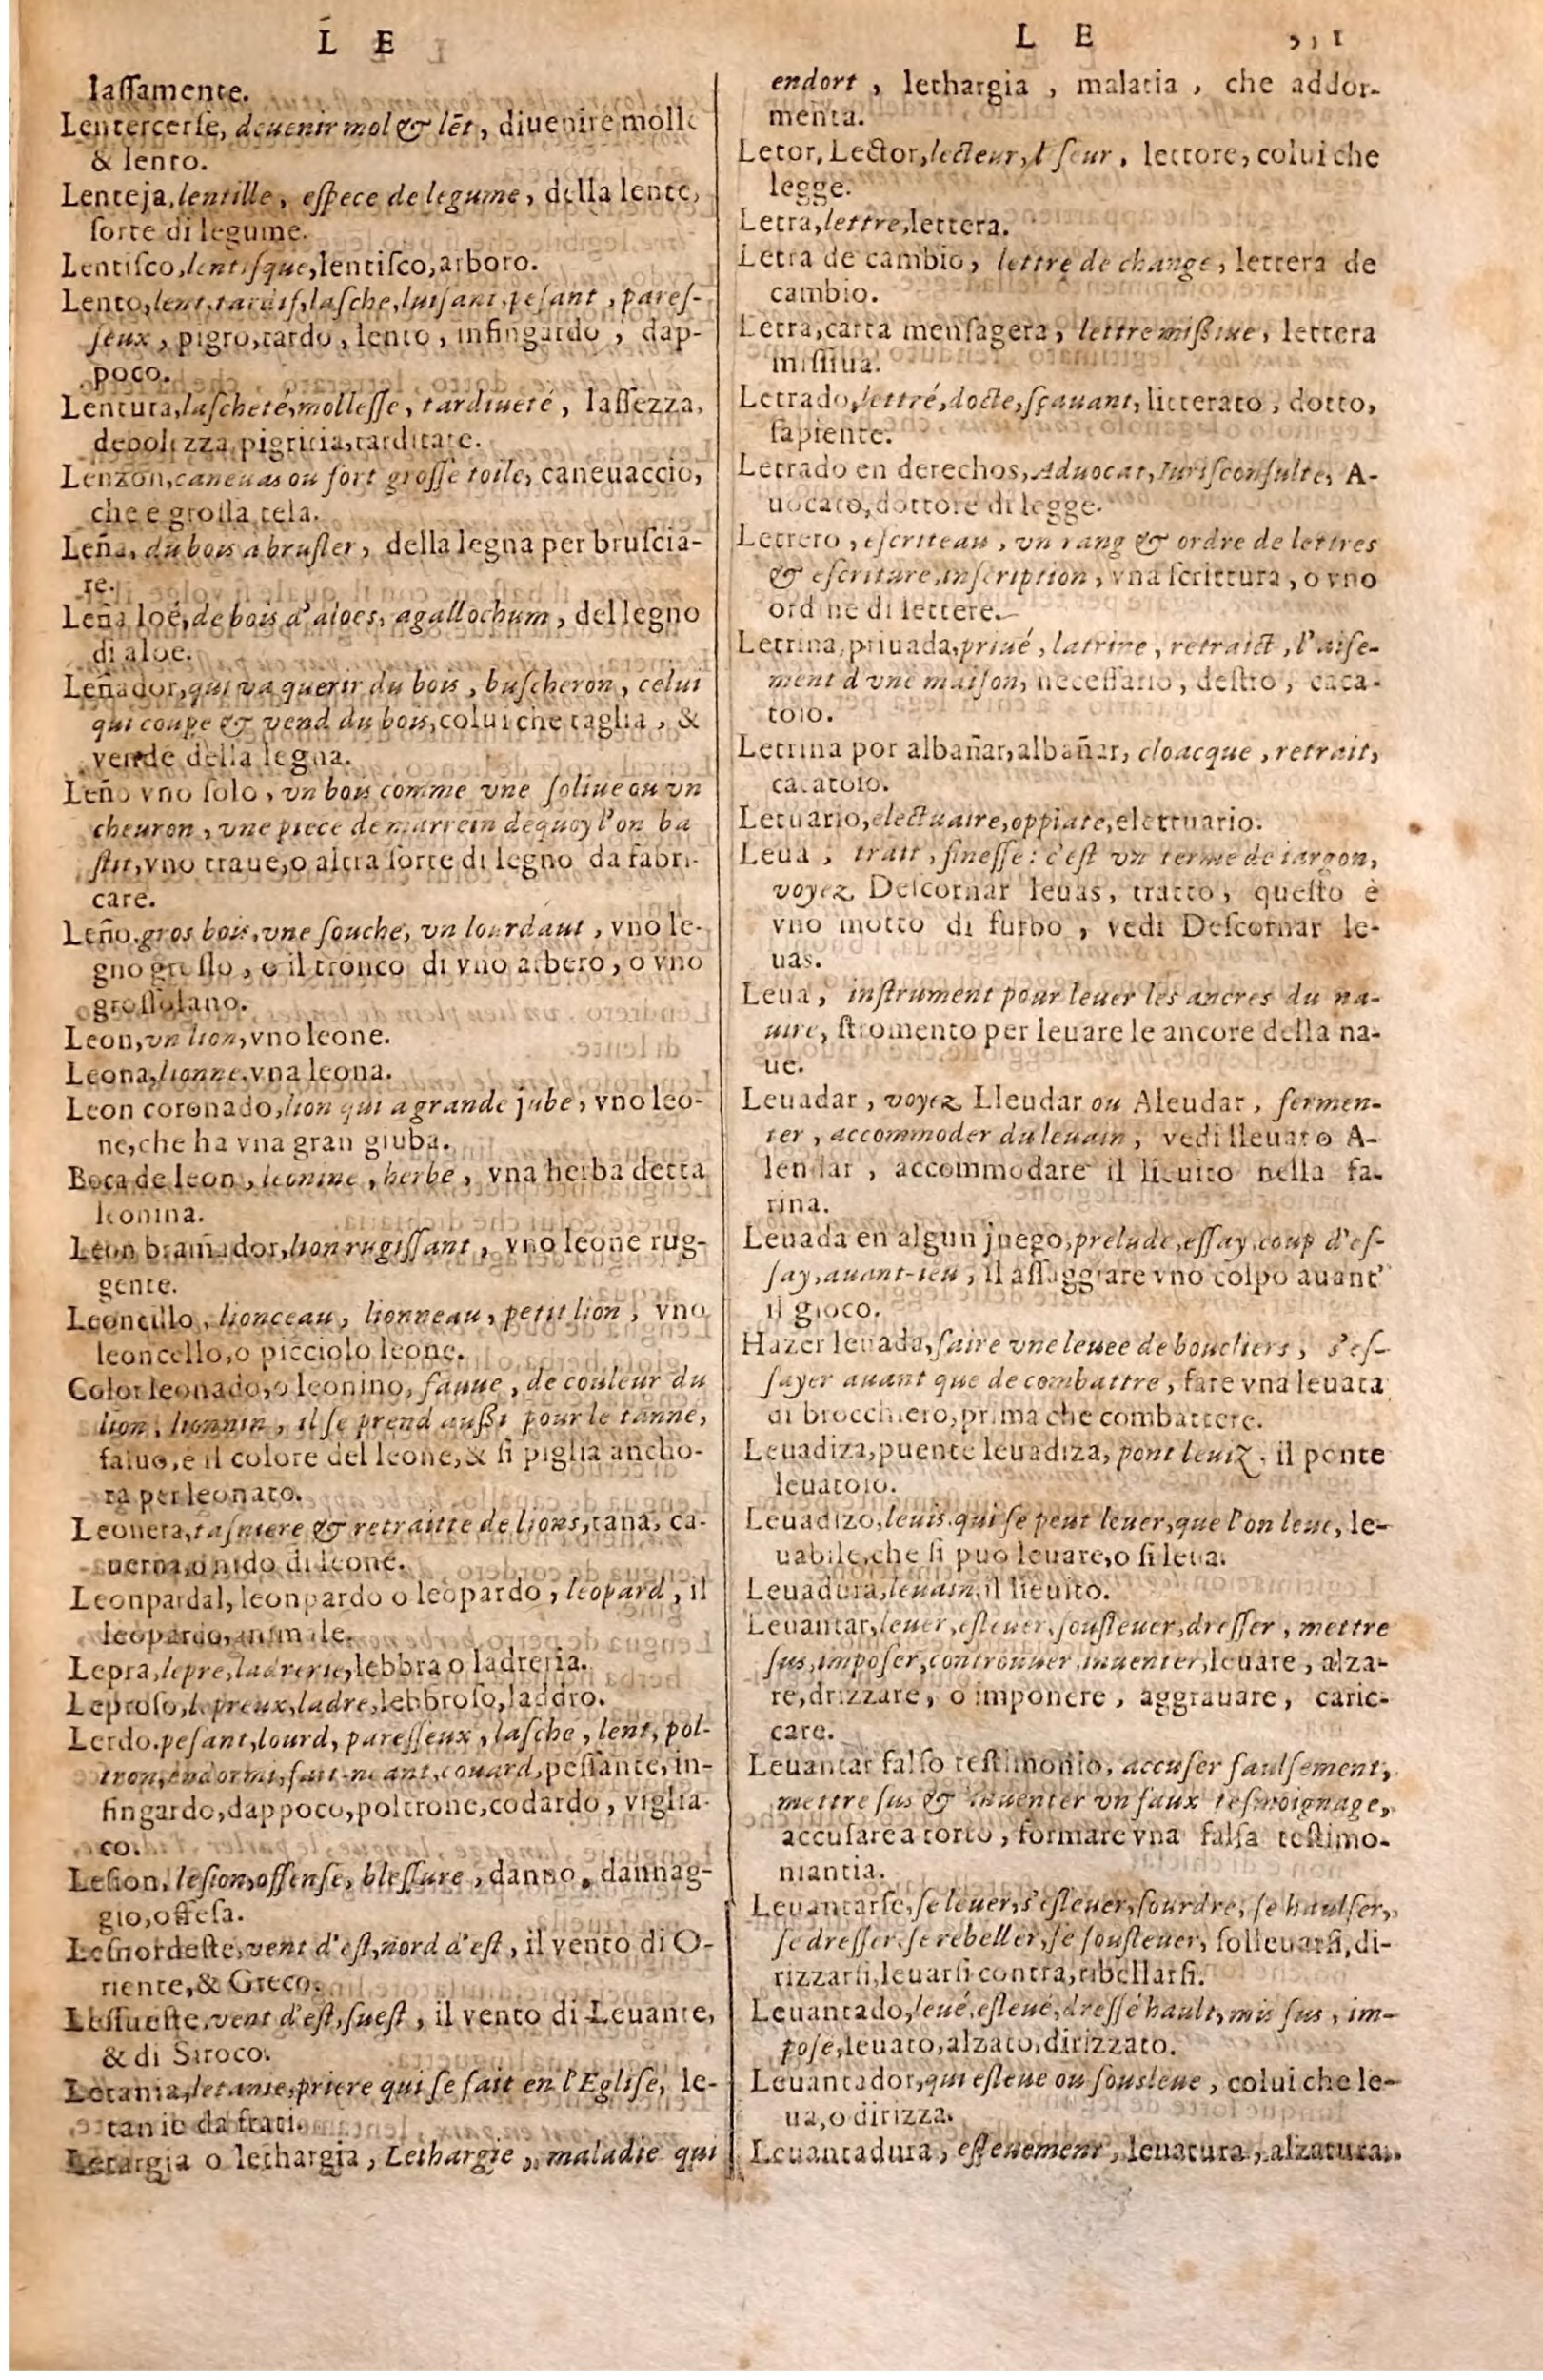 L E
laſſamente.
Lentercerſe, deuenir mol & lẽt, diuenire molle
& lento.
Lenteja, lentille, eſpece de legume, della lente,
ſorte di legume.
Lentiſco, lentiſque, lentiſco, arboro.
Lento, lent, tardif, laſche, luiſant, peſant, pareſ-
ſeux, pigro, tardo, lento, infingardo, dap-
poco.
Lentura, laſcheté, molleſſe, tardiueté, laſſezza,
debolezza pigritia, tarditate.
Lenzon, caneuas ou fort groſſe toile, caneuaccio,
che e groſſa tela.
Leña, du bois à bruſler, della legna per bruſcia-
re.
Leña loé, de bois d'aloes, agallochum, del legno
di aloe.
Leñador, qui va querir du bois, buſcheron, celui
qui coupe & vend du bois, colui che taglia, &
vende della legna.
Leño vno ſolo, vn bois comme vne ſoliue ou vn
cheuron, vne piece de marrein dequoy l'on ba
ſtit, vno traue, o altra ſorte di legno da fabri-
care.
Leño. gros bois, vne ſouche, vn lourdaut, vno le-
gno groſſo, o il tronco di vno arbero, o vno
groſſolano.
Leon, vn lion, vno leone.
Leona, lionne, vna leona.
Leon coronado, lion qui a grande jube, vno leo-
ne, che ha vna gran giuba.
Boca de leon, leonine, herbe, vna herba detta
leonina.
Leon bramador, lion rugiſſant, vno leone rug-
gente.
Leoncillo, lionceau, lionneau, petit lion, vno
leoncello, o picciolo leone.
Color leonado, o leonino, fauue, de couleur du
lion, lionnin, il ſe prend außi pour le tanne,
faluo, e il colore del leone, & ſi piglia ancho-
ra per leonato.
Leonera, taſniere & retraitte de lions, tana, ca-
uerna, o nido di leone.
Leonpardal, leonpardo o leopardo, leopard, il
leopardo, animale.
Lepra, lepre, ladrerie, lebbra o ladreria.
Leproſo, lepreux, ladre, lebbroſo, laddro.
Lerdo. peſant, lourd, pareſſeux, laſche, lent, pol-
tron, endormi, fait-neant, couard, peſſante, in-
fingardo, dappoco, poltrone, codardo, viglia-
co.
Leſion, leſion, offenſe, bleſſure, danno, dannag-
gio, offeſa.
Leſnordeſte, vent d'eſt, nord d'eſt, il vento di O-
riente, & Greco.
Leſſueſte, vent d'eſt, ſueſt, il vento di Leuante,
& di Siroco.
Letania, letanie, priere qui ſe fait en l'Egliſe, le-
tanie da frati.
Letargia o lethargia, Lethargie, maladie qui
L E
endort, lethargia, malatia, che addor-
menta.
Letor, Lector, lecteur, liſeur, lettore, colui che
legge.
Letra, lettre, lettera.
Letra de cambio, lettre de change, lettera de
cambio.
Letra, carta menſagera, lettre mißiue, lettera
miſſiua.
Letrado, lettré, docte, ſçauant, litterato, dotto,
ſapiente.
Letrado en derechos, Aduocat, Iuriſconſulte, A-
uocato, dottore di legge.
Letrero, eſcriteau, vn rang & ordre de lettres
& eſcriture, inſcription, vna ſcrittura, o vno
ordine di lettere.
Letrina, priuada, priué, latrine, retraict, l'aiſe-
ment d'vne maiſon, neceſſario, deſtro, caca-
toio.
Letrina por albañar, albañar, cloacque, retrait,
cacatoio.
Letuario, electuaire, oppiate, elettuario.
Leua, trait, fineſſe: c'eſt vn terme de iargon,
voyez Deſcornar leuas, tratto, queſto è
vno motto di furbo, vedi Deſcornar le-
uas.
Leua, inſtrument pour leuer les ancres du na-
uire, ſtromento per leuare le ancore della na-
ue.
Leuadar, voyez Lleudar ou Aleudar, fermen-
ter, accommoder du leuain, vedi lleuaro A-
lendar, accommodare il lieuito nella fa-
rina.
Leuada en algun juego, prelude, eſſay, coup d'eſ-
ſay, auant-ieu, il aſſaggiare vno colpo auant'
il gioco.
Hazer leuada, faire vne leuee de boucliers, s'eſ-
ſayer auant que de combattre, fare vna leuata
di brocchiero, prima che combattere.
Leuadiza, puente leuadiza, pont leuiz, il ponte
leuatoio.
Leuadizo, leuis. qui ſe peut leuer, que l'on leue, le-
uabile, che ſi può leuare, o ſi leua.
Leuadura, leuain, il lieuito.
Leuantar, leuer, eſleuer, ſouſleuer, dreſſer, mettre
ſus, impoſer, controuuer, inuenter, leuare, alza-
re, drizzare, o imponere, aggrauare, caric-
care.
Leuantar falſo teſtimonio, accuſer faulſement,
mettre ſus & inuenter vn faux teſmoignage,
accuſare a torto, formare vna falſa teſtimo-
niantia.
Leuantarſe, ſe leuer, s'eſleuer, ſourdre, ſe haulſer,
ſe dreſſer, ſe rebeller, ſe ſouſleuer, ſolleuarſi, di-
rizzarſi, leuarſi contra, ribellarſi.
Leuantado, leué, eſleué, dreſſé hault, mis ſus, im-
poſe, leuato, alzato, dirizzato.
Leuantador, qui eſleue ou ſousleue, colui che le-
ua, o dirizza.
Leuantadura, eſleuement, leuatura, alzatura.